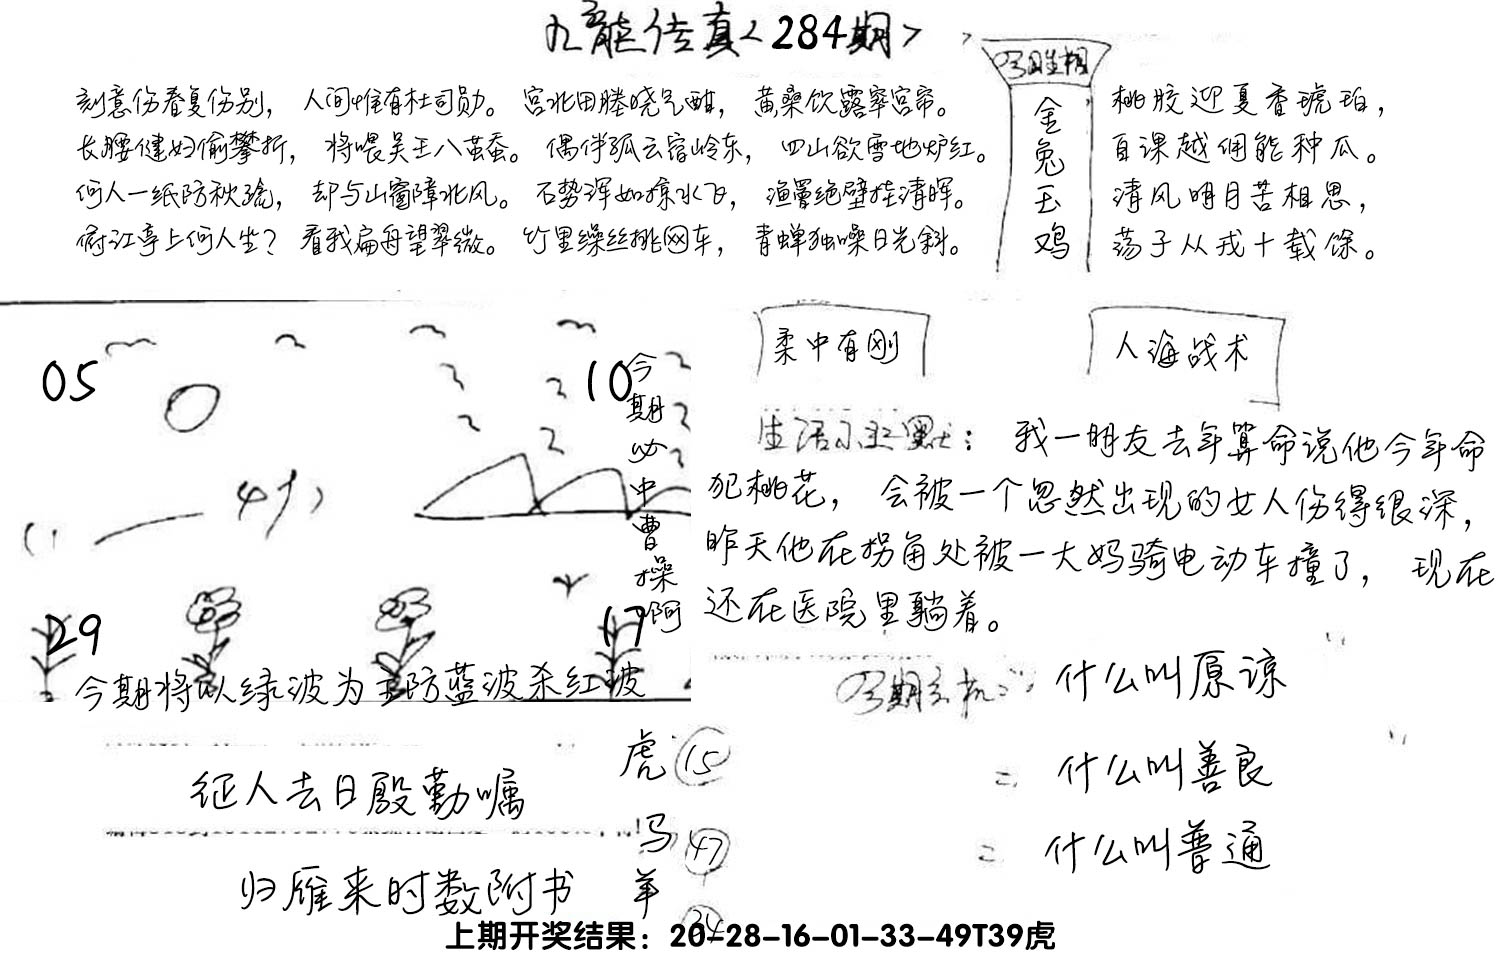 九龙传真<284期>
刻意伤春复伤别，人间惟有杜司勋。宫北田塍晓气酣，黄桑饮露窣宫帘。
长腰健妇偷攀折，将喂吴王八茧蚕。偶伴孤云宿岭东，四山欲雪地炉红。
何人一纸防秋疏，却与山窗障北风。石势浑如掠水飞，渔罾绝壁挂清晖。
俯江亭上何人坐？看我扁舟望翠微。竹里缲丝挑网车，青蝉独噪日光斜。
金
兔
玉
鸡
桃胶迎夏香琥珀，
自课越佣能种瓜。
清风明月苦相思，
荡子从戎十载馀。
05
10
29
17
今期必中曹操啊
今期将以绿波为主防蓝波杀红波
柔中有刚
人海战术
我一朋友去年算命说他今年命
犯桃花，会被一个忽然出现的女人伤得很深，
昨天他在拐角处被一大妈骑电动车撞了，现在
还在医院里躺着。
什么叫原谅
什么叫善良
什么叫普通
征人去日殷勤嘱
归雁来时数附书
虎 15
马 47
羊 34
上期开奖结果：20-28-16-01-33-49T39虎